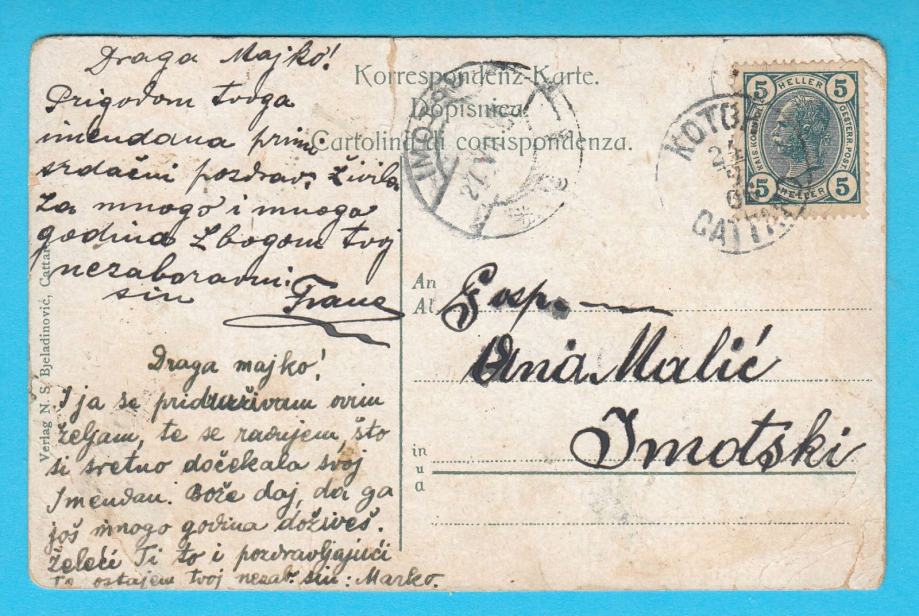 Draga Majko!
Prigodom tvoga
imendana primi
srdačni pozdrav. Živila
za mnogo i mnogo
godina Zbogom tvoj
nezaboravni
sin Frane
Draga majko!
I ja se pridruživam ovim
željam, te se radujem, što
si sretno dočekala svoj
Imendan. Bože daj, da ga
još mnogo godina doživeš.
želeći Ti to i pozdravljajući
Te ostajem tvoj nezab. sin: Marko.
Verlag N. S. Bjeladinović, Cattaro
Korrespondenz-Karte.
Dopisnica.
Cartolina di corrispondenza.
IMOTSKI
KOTOR
CATTARO
5 HELLER 5
5 HELLER 5
An
Al
Gosp.
Ana Malić
in
u
a
Imotski